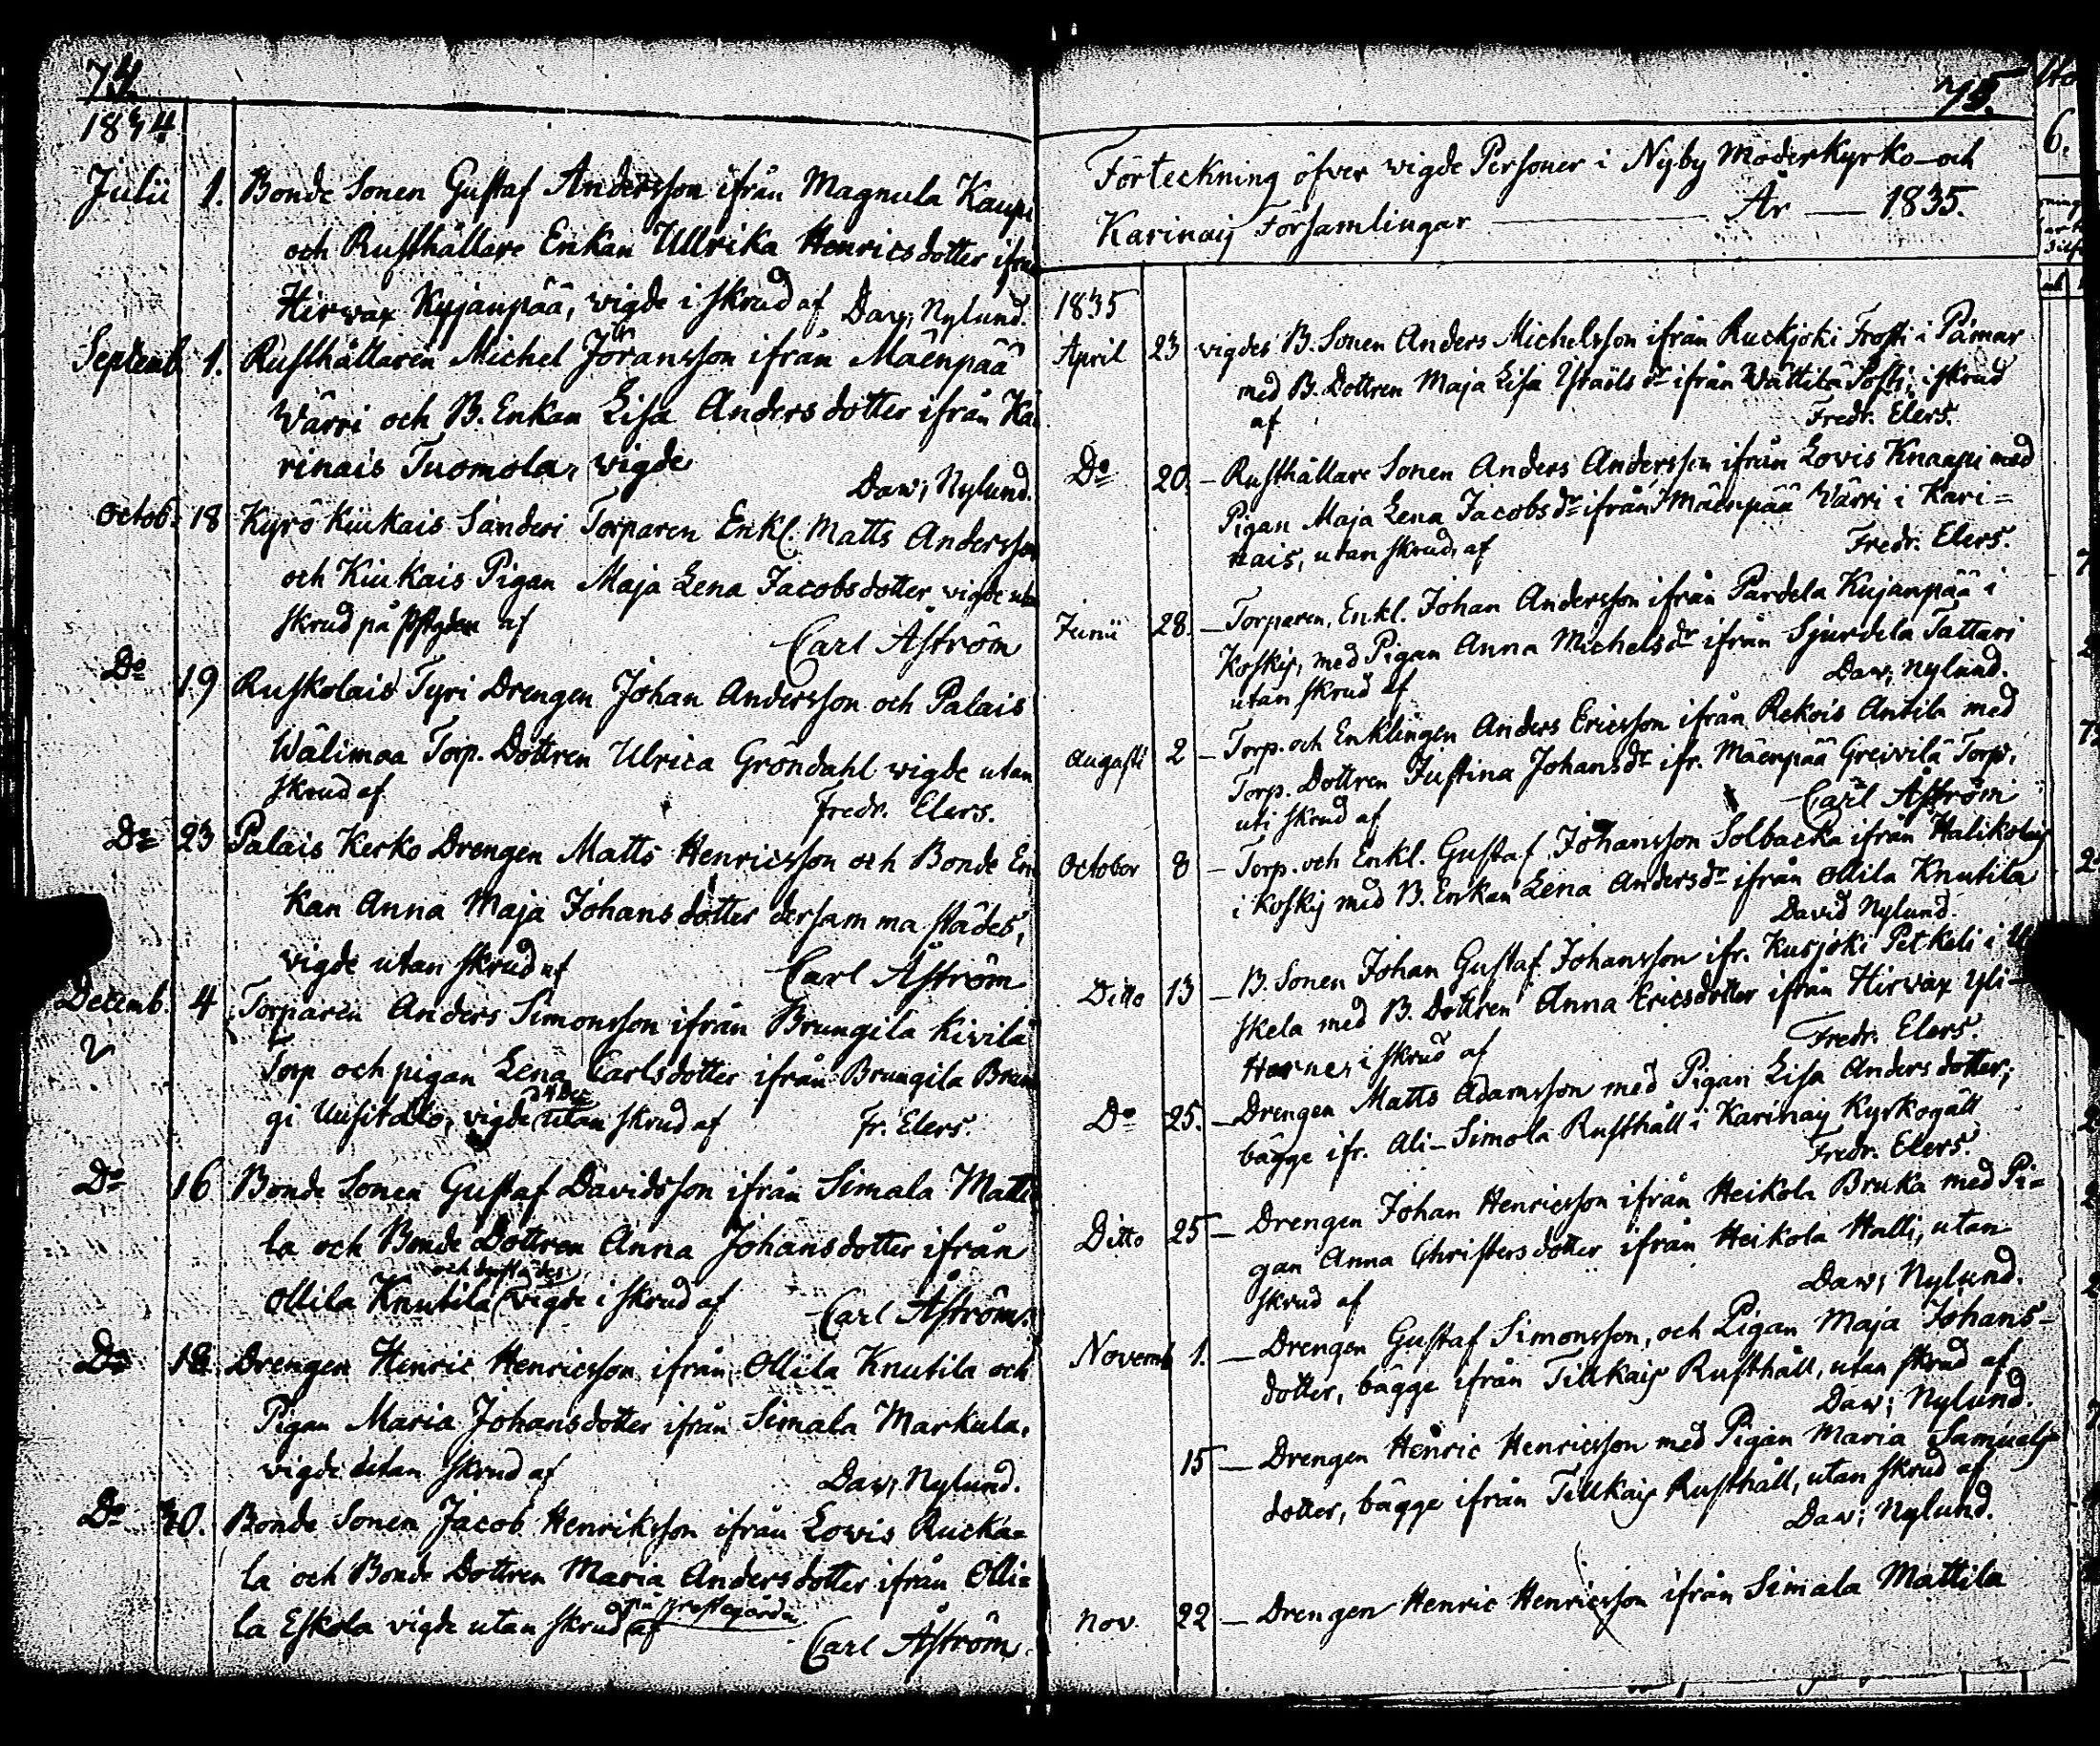 74.
1834
Julii 1. Bonde Sonen Gustaf Andersson ifrån Magnula Kaupi
och Rusthållare Enkan Ullrika Henricsdotter ifrån
Hirwax Kyjanpää, wigde i skrud af Daw; Nylund.
Septemb 1. Rusthållaren Michel Joransson ifrån Mäenpää
Wärri och B. Enkan Lisa Andersdotter ifrån Ka
rinais Tuomola, wigde Daw; Nylund.
Octob: 18 Kyrö Kiukais Sanderi Torparen Enkl. Matts Andersson
och Kiukais Pigan Maja Lena Jacobsdotter wigde utan
skrud på af Carl Åström
Do 19 Ruskolais Tyri Drengen Johan Andersson och Palais
Wälimaa Torp. Dottren Ulrica Gröndahl wigde utan
skrud af Fredr. Elers.
Do 23 Palais Kerko Drengen Matts Henricsson och Bonde En
kan Anna Maja Johansdotter dersammastädes,
wigde utan skrud af Carl Åström
Decemb. 4 Torparen Anders Simonsson ifrån Brungila Kivilä
Torp och pigan Lena Carlsdotter ifrån Brungila Brun
gi Uusitalo, wigde utan skrud af Fr. Elers.
Do 16 Bonde Sonen Gustaf Davidsson ifrån Simala Matti
la och Bonde Dottren Anna Johansdotter ifrån
och derstädes
Ollila Knutila wigde i skrud af Carl Åström.
Do 18. Drengen Henric Henricsson ifrån Ollila Knutila och
Pigan Maria Johansdotter ifrån Simala Markula,
wigde utan skrud af Daw; Nylund.
Do 30. Bonde Sonen Jacob Henriksson ifrån Lowis Rucka=
la och Bonde Dottren Maria Andersdotter ifrån Olli=
på prestegården
la Eskola wigde utan skrud af Carl Åström.
75.
Förteckning öfver wigde Personer i Nyby Moderkyrko- och
Karinais Församlingar År 1835.
1835
April 23 wigdes B. Sonen Anders Michelsson ifrån Ruckjoki Frosti i Pämar
med B. Dottren Maja Lisa Israëls dr ifrån Wättilä Posti, i skrud
af Fredr. Elers.
Do 20. – Rusthållare Sonen Anders Andersson ifrån Lovis Knaapi med
Pigan Maja Lena Jacobs dr ifrån Mäenpää Wärri i Kari=
nais, utan skrud, af Fredr. Elers.
Junii 28. – Torparen, Enkl. Johan Andersson ifrån Pardela Kujanpää i
Koskis, med Pigan Anna Michels dr ifrån Sjurdela Tattari
utan skrud af Daw; Nylund.
Augusti 2 – Torp. och Enklingen Anders Ericsson ifrån Rekois Antila med
Torp. Dottren Justina Johans dr ifr. Mäenpää Greivilä Torp,
uti skrud af Carl Åström
October 8 – Torp. och Enkl. Gustaf Johansson Solbacka ifrån Halikolais
i Koskis med B. Enkan Lena Anders dr ifrån Ollila Knutila
David Nylund.
Ditto 13 – B. Sonen Johan Gustaf Johansson ifr. Kusjoki Petkeli i U
skela med B. Dottren Anna Ericsdotter ifrån Hirvax Yli-
Horne, i skrud af Fredr. Elers.
Do 25. – Drengen Matts Adamsson med Pigan Lisa Andersdotter,
bägge ifr. Ali-Simola Rusthåll i Karinais Kyrkogäll
Fredr. Elers.
Ditto 25 – Drengen Johan Henricsson ifrån Heikola Bruka med Pi=
gan Anna Christersdotter ifrån Heikola Halli, utan
skrud af Daw; Nylund.
Novemb 1. – Drengen Gustaf Simonsson, och Pigan Maja Johans-
dotter, bägge ifrån Tillkais Rusthåll, utan skrud af
Daw; Nylund.
15 – Drengen Henric Henricsson med Pigan Maria Samuels
dotter, bägge ifrån Tillkais Rusthåll, utan skrud af
Daw; Nylund.
Nov. 22 – Drengen Henric Henricsson ifrån Simala Mattila
6.